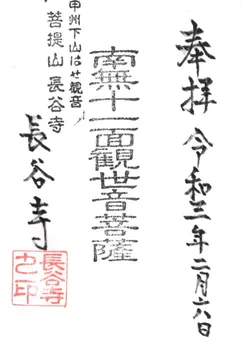 奉拝 令和三年二月六日
南無十一面観世音菩薩
甲州下山はせ観音
菩提山長谷寺
長谷寺
長谷寺
之印